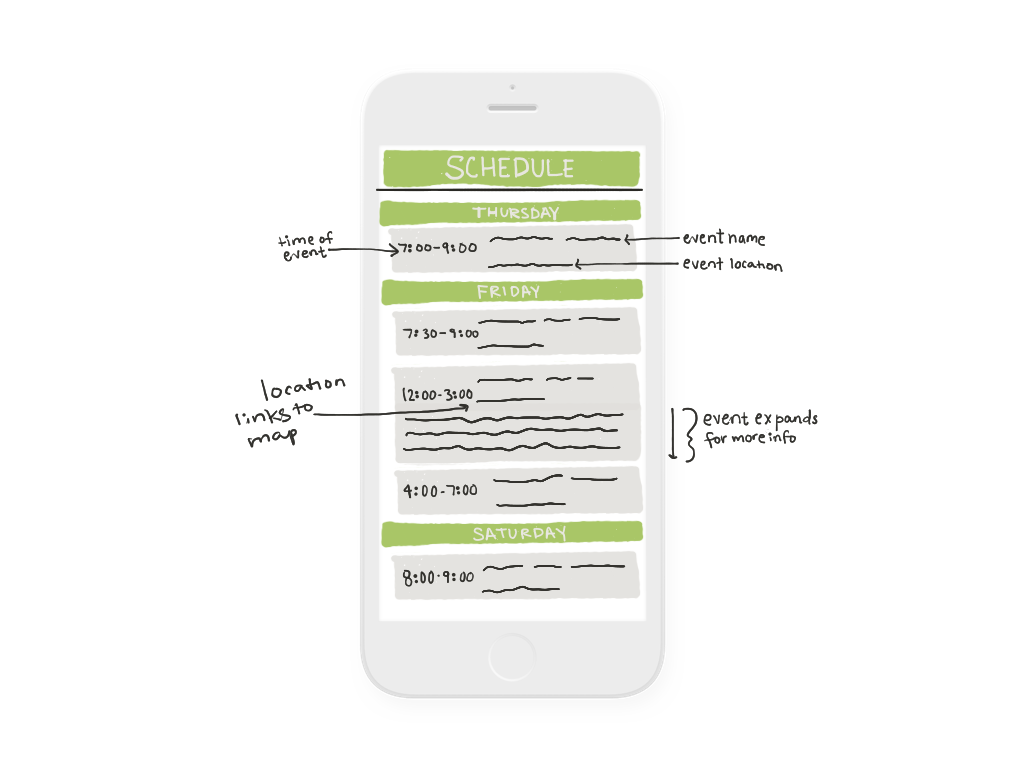 SCHEDULE
THURSDAY
time of
event
7:00-9:00
event name
event location
FRIDAY
7:30-9:00
location
links to
map
12:00-3:00
event expands
for more info
4:00-7:00
SATURDAY
8:00-9:00